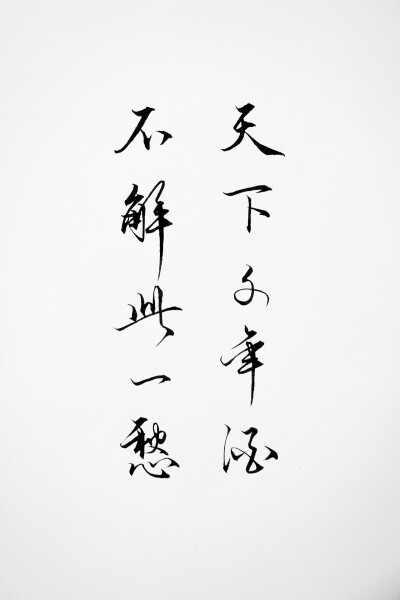 天下久年酒
不解此一愁